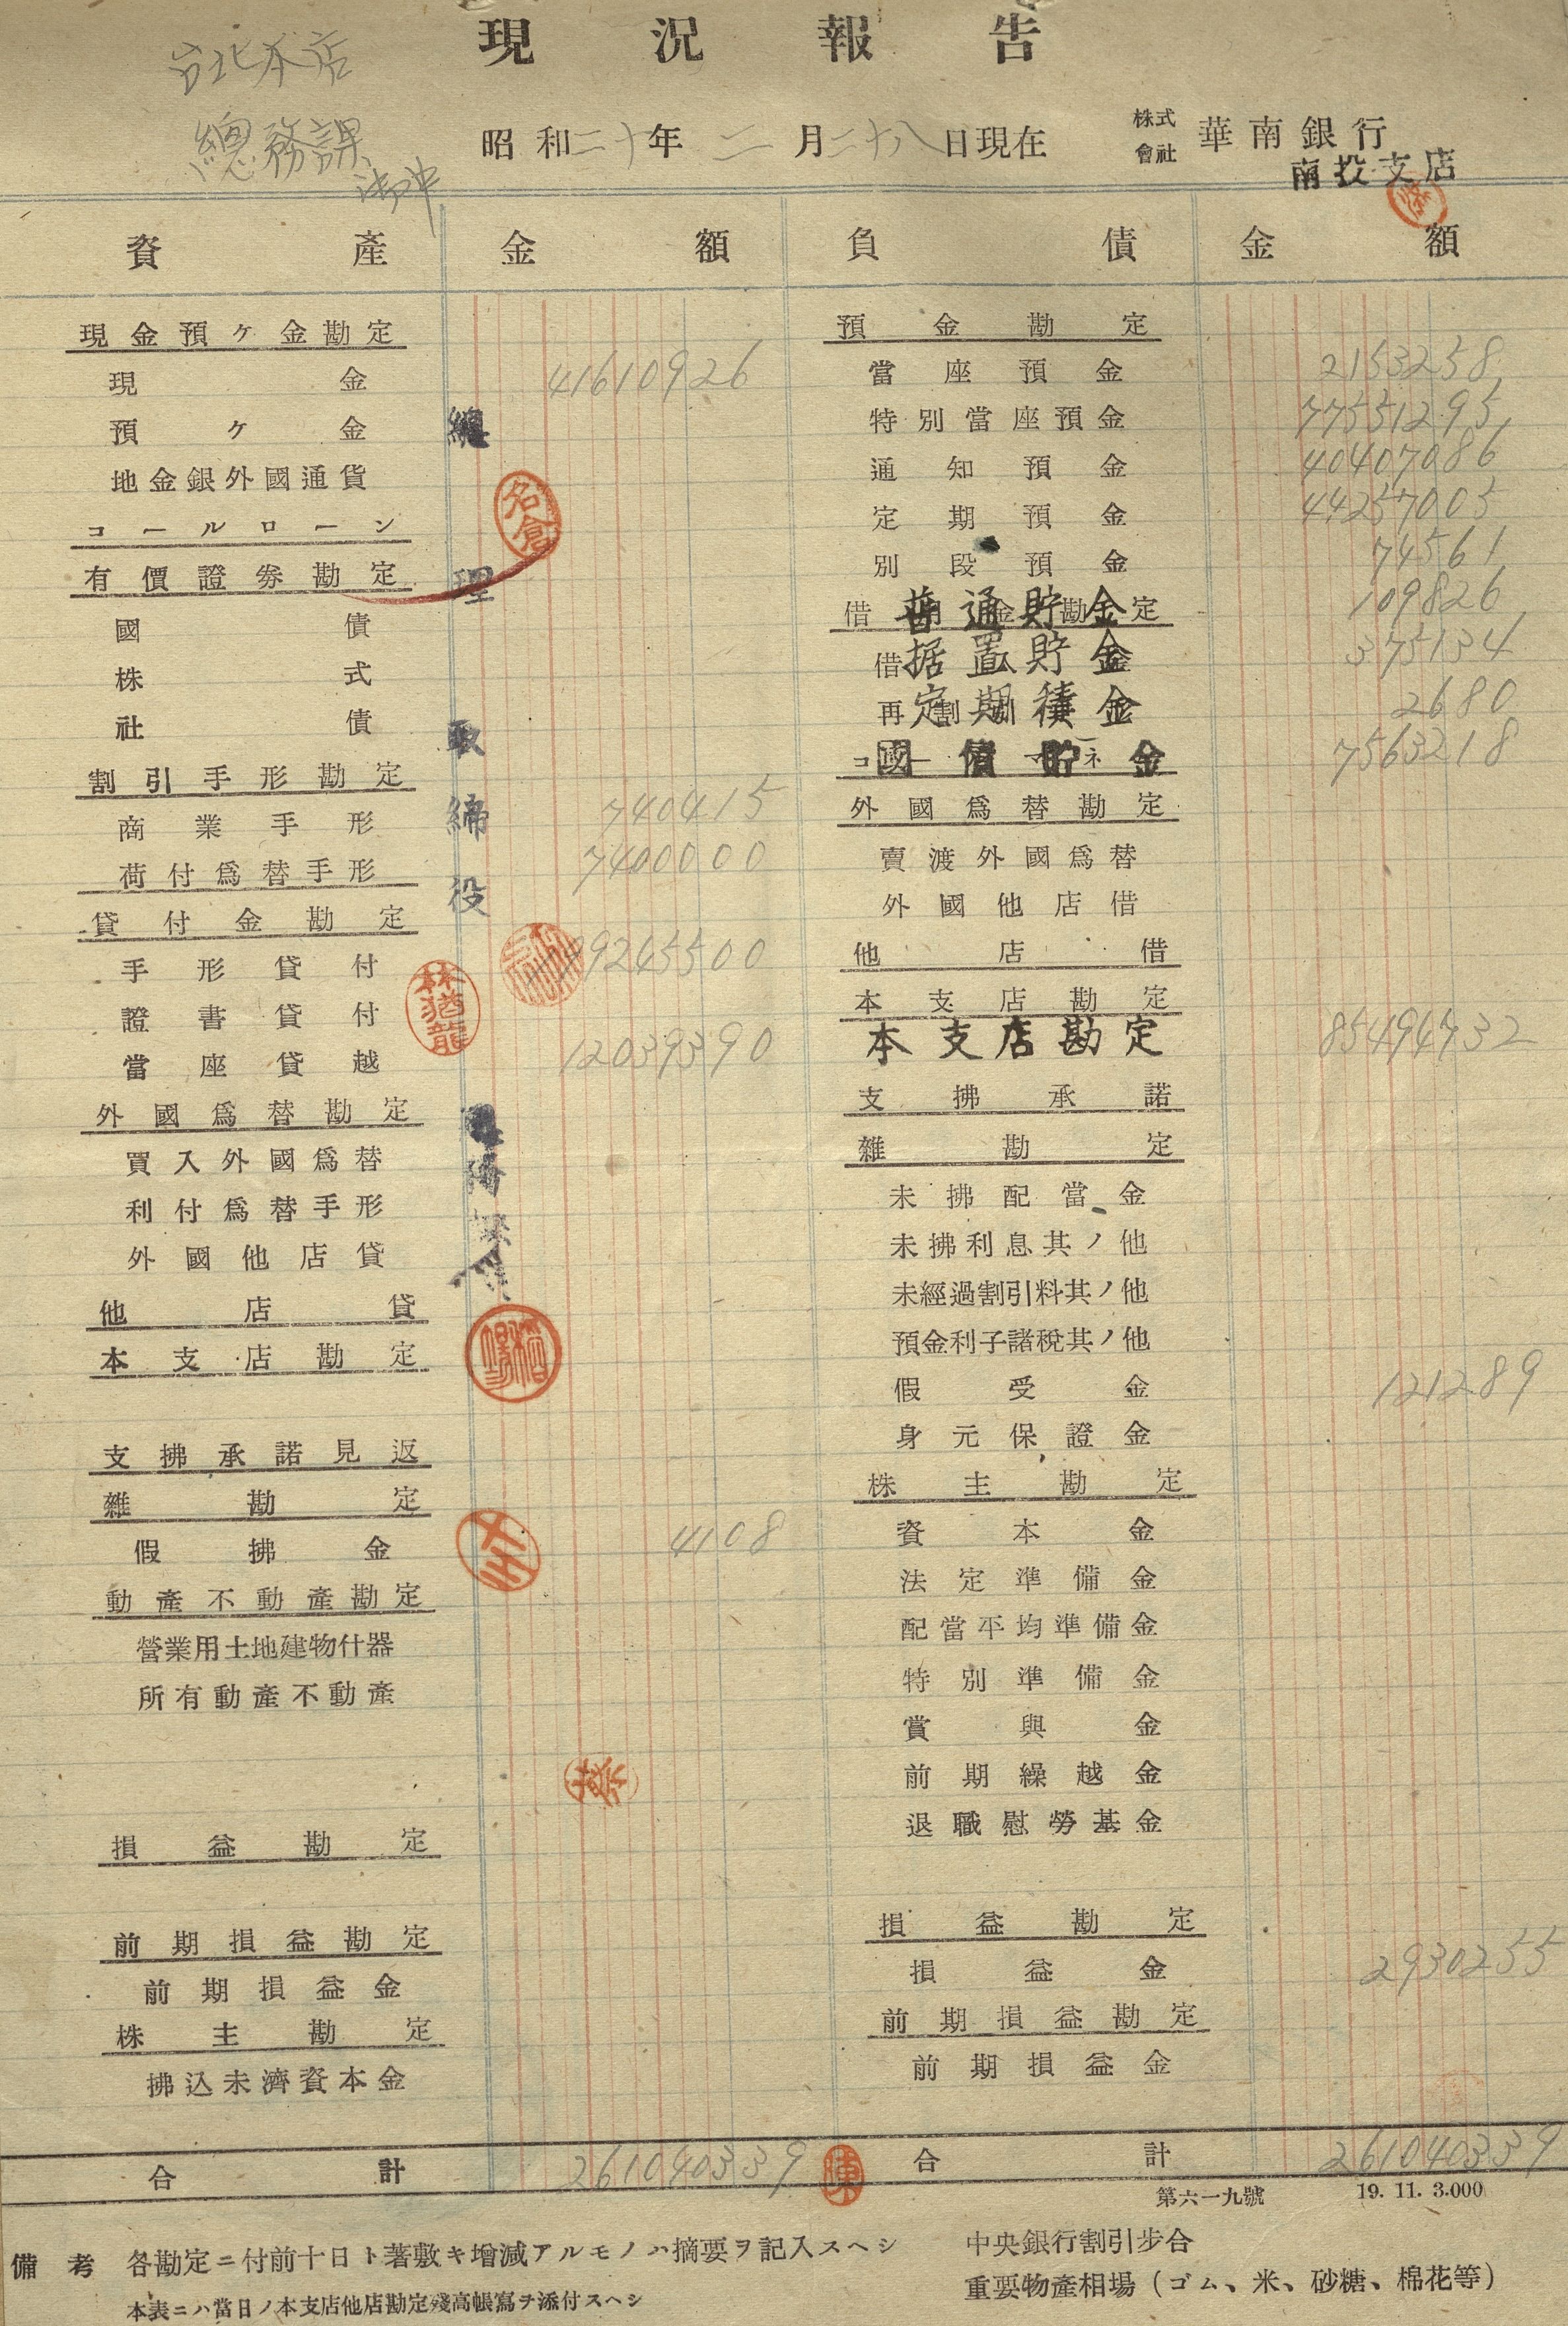 現況報告
台北本店
總務課
御中
昭和二十年二月二十八日現在
株式會社 華南銀行
南投支店
資產 金額
現金預ケ金勘定
現金 41610926
預ケ金
地金銀外國通貨
コールローン
有價證劵勘定
國債
株式
社債
割引手形勘定
商業手形 740415
荷付爲替手形 7400000
貸付金勘定
手形貸付 199245500
證書貸付
當座貸越 12039390
外國爲替勘定
買入外國爲替
利付爲替手形
外國他店貸
他店貸
本支店勘定
支拂承諾見返
雜勘定
假拂金 4108
動產不動產勘定
營業用土地建物什器
所有動產不動產
損益勘定
前期損益勘定
前期損益金
株主勘定
拂込未濟資本金
合計 261040339
總理
名倉
取締役
林猶龍
陳
負債 金額
預金勘定
當座預金 2153258
特別當座預金 77551295
通知預金 40407086
定期預金 44257005
別段預金 74561
普通貯金 109826
据置貯金 375134
定期積金 2680
國債貯金 7563218
外國爲替勘定
賣渡外國爲替
外國他店借
他店借
本支店勘定
本支店勘定 85494732
支拂承諾
雜勘定
未拂配當金
未拂利息其ノ他
未經過割引料其ノ他
預金利子諸稅其ノ他
假受金 121289
身元保證金
株主勘定
資本金
法定準備金
配當平均準備金
特別準備金
賞與金
前期繰越金
退職慰勞基金
損益勘定
損益金 2930255
前期損益勘定
前期損益金
合計 261040339
第六一九號 19. 11. 3.000
備考 各勘定ニ付前十日ト著敷キ增減アルモノハ摘要ヲ記入スヘシ
本表ニハ當日ノ本支店他店勘定殘高帳寫ヲ添付スヘシ
中央銀行割引步合
重要物產相場（ゴム、米、砂糖、棉花等）